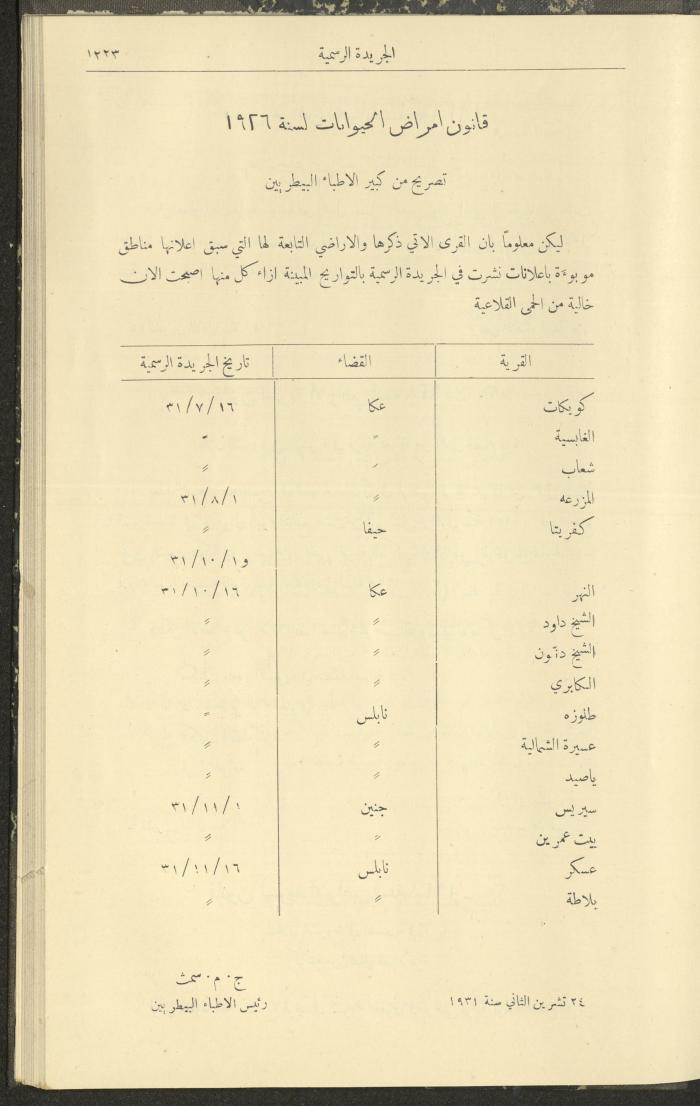 الجريدة الرسمية ١٢٢٣
قانون امراض الحيوانات لسنة ١٩٢٦
تصريح من كبير الاطباء البيطريين
ليكن معلوماً بان القرى الاتي ذكرها والاراضي التابعة لها التي سبق اعلانها مناطق
موبوءة باعلانات نشرت في الجريدة الرسمية بالتواريخ المبينة ازاء كل منها اصبحت الان
خالية من الحمى القلاعية
القرية القضاء تاريخ الجريدة الرسمية
كويكات عكا ٣١/٧/١٦
الغابسية " "
شعاب " "
المزرعه " ٣١/٨/١
كفريتا حيفا "
و ٣١/١٠/١
النهر عكا ٣١/١٠/١٦
الشيخ داود " "
الشيخ دنون " "
الكابري " "
طلوزه نابلس "
عسيرة الشمالية " "
ياصيد " "
سيريس جنين ٣١/١١/١
بيت عمرين " "
عسكر نابلس ٣١/١١/١٦
بلاطة " "
ج٠ م٠ سمث
٢٤ تشرين الثاني سنة ١٩٣١ رئيس الاطباء البيطريين